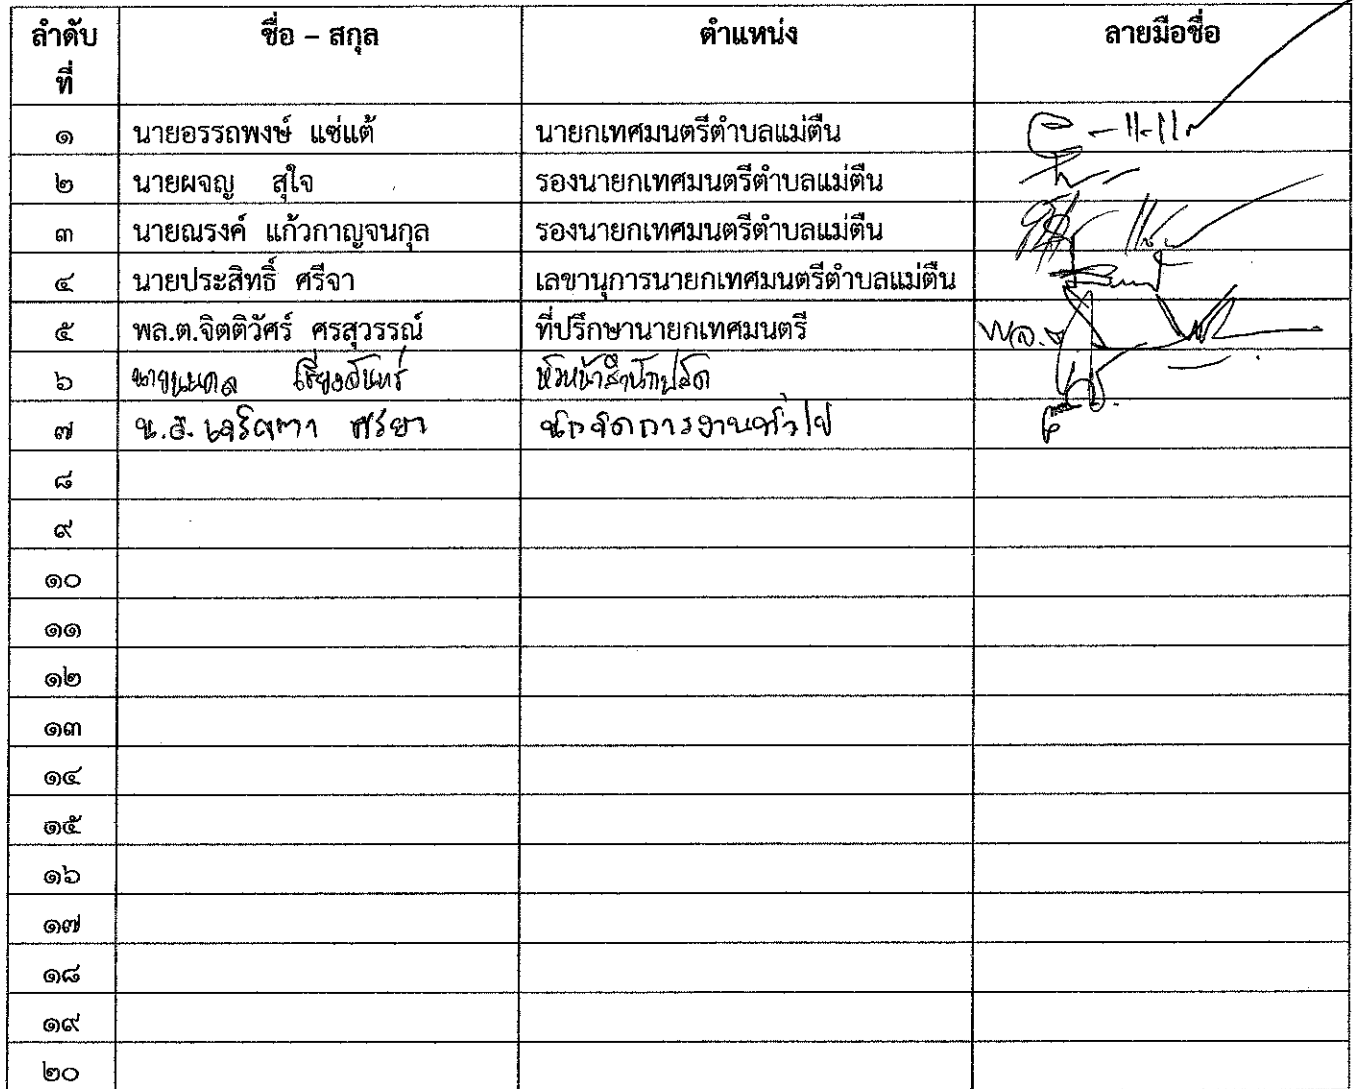 ลำดับ ชื่อ – สกุล ตำแหน่ง ลายมือชื่อ
ที่
๑ นายอรรถพงษ์ แซ่แต้ นายกเทศมนตรีตำบลแม่ตืน
๒ นายผจญ สุใจ รองนายกเทศมนตรีตำบลแม่ตืน
๓ นายณรงค์ แก้วกาญจนกุล รองนายกเทศมนตรีตำบลแม่ตืน
๔ นายประสิทธิ์ ศรีจา เลขานุการนายกเทศมนตรีตำบลแม่ตืน
๕ พล.ต.จิตติวัศร์ ศรสุวรรณ์ ที่ปรึกษานายกเทศมนตรี พล.ต
๖ หัวหน้าสำนักปลัด
๗ นักจัดการงานทั่วไป
๘
๙
๑๐
๑๑
๑๒
๑๓
๑๔
๑๕
๑๖
๑๗
๑๘
๑๙
๒๐